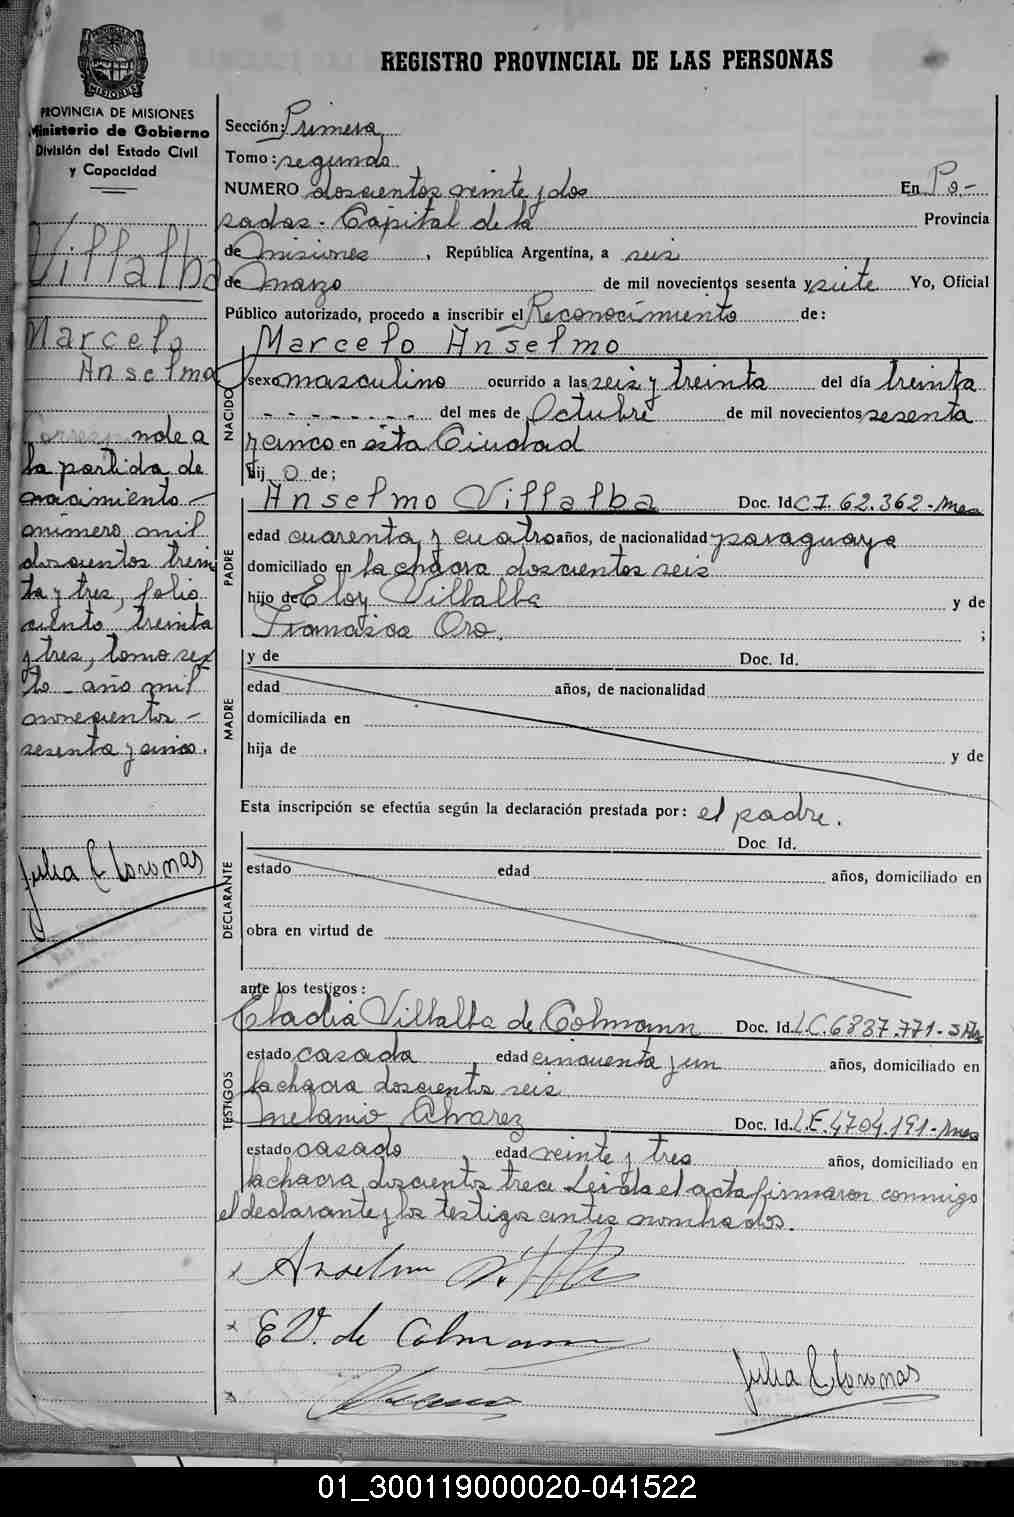 REGISTRO PROVINCIAL DE LAS PERSONAS
PROVINCIA DE MISIONES
Ministerio de Gobierno
División del Estado Civil
y Capacidad
Villalba
Marcelo
Anselmo
nde a
la partida de
nacimiento -
número mil
doscientos trein
ta y tres, folio
ciento treinta
y tres, tomo sex
to - año mil
novecientos -
sesenta y cinco.
Julia E Coronas
Sección: Primera
Tomo: segundo
NUMERO doscientos veinte y dos En Po-
sadas - Capital de la Provincia
de Misiones, República Argentina, a seis
de marzo de mil novecientos sesenta y siete Yo, Oficial
Público autorizado, procedo a inscribir el Reconocimiento de:
Marcelo Anselmo
NACIDO
sexo masculino ocurrido a las seis y treinta del día treinta
- - - - - - - del mes de Octubre de mil novecientos sesenta
y cinco en esta Ciudad
hijo de:
Anselmo Villalba Doc. Id. C.I. 62.362 - Mnes
PADRE
edad cuarenta y cuatro años, de nacionalidad paraguaya
domiciliado en la chacra doscientos seis
hijo de Eloy Villalba y de
Francisca Oro. ;
MADRE
y de Doc. Id.
edad años, de nacionalidad
domiciliada en
hija de y de
Esta inscripción se efectúa según la declaración prestada por: el padre.
DECLARANTE
Doc. Id.
estado edad años, domiciliado en
obra en virtud de
ante los testigos:
TESTIGOS
Eladia Villalba de Colmann Doc. Id. L.C. 6837.771 -
estado casada edad cincuenta y un años, domiciliado en
la chacra doscientos seis
Melanio Alvarez Doc. Id. L.E. 4704.191 - Mnes
estado casado edad veinte y tres años, domiciliado en
la chacra doscientos trece Leída el acta firmaron conmigo
el declarante y los testigos antes nombrados.
x Anselmo Villalba
x E V. de Colmann
x
Julia E Coronas
01_300119000020-041522